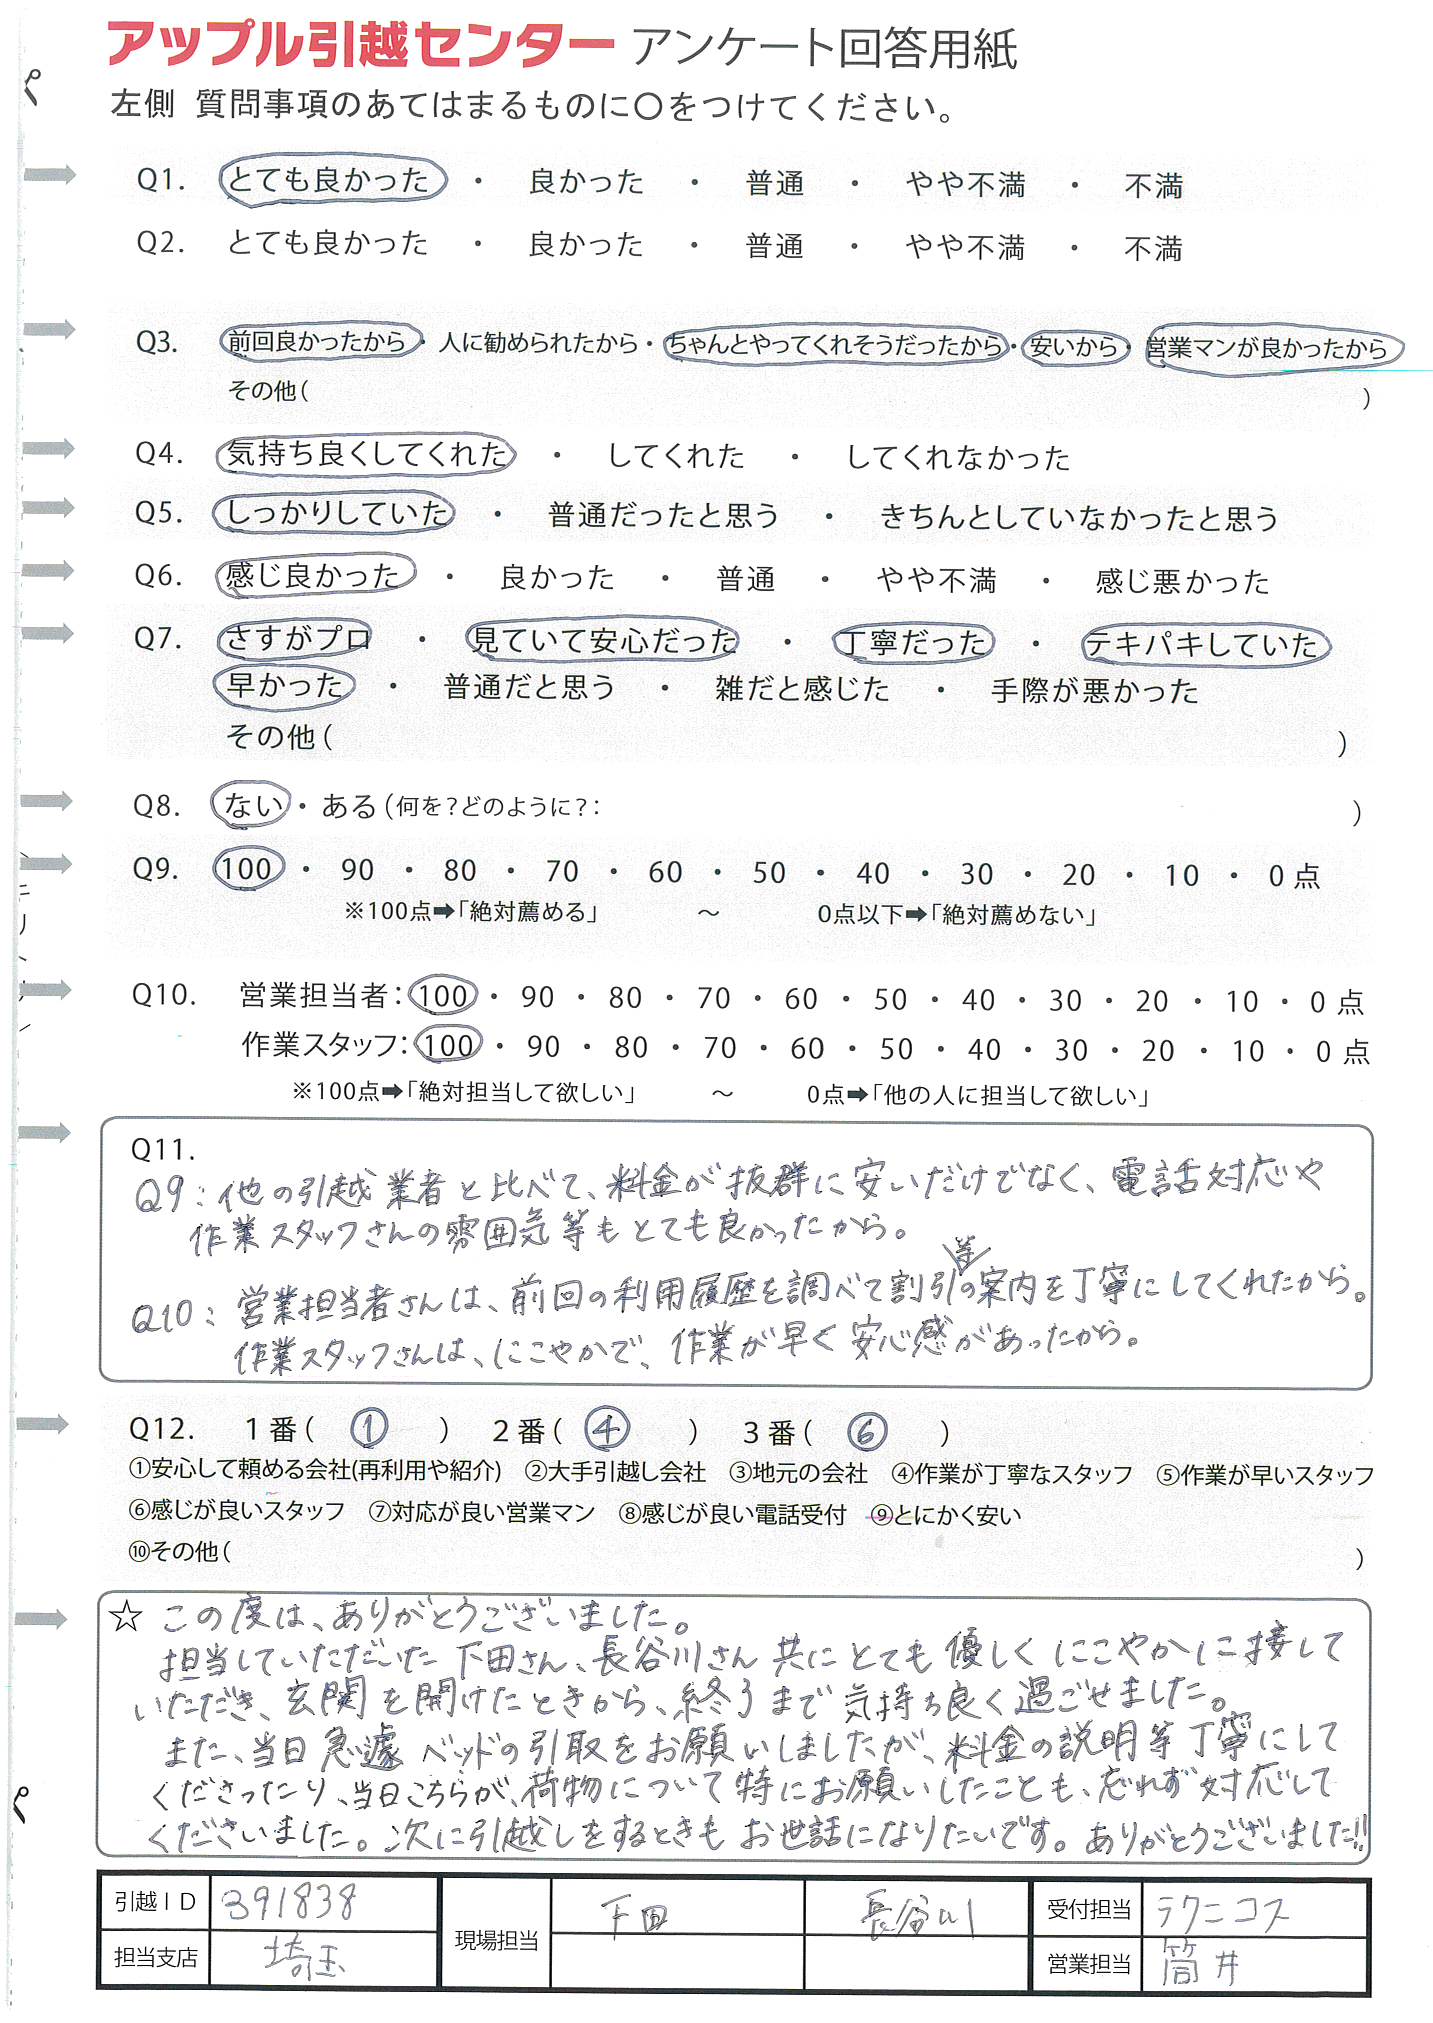 アップル引越センター アンケート回答用紙
左側 質問事項のあてはまるものに〇をつけてください。
Q1. とても良かった ・ 良かった ・ 普通 ・ やや不満 ・ 不満
Q2. とても良かった ・ 良かった ・ 普通 ・ やや不満 ・ 不満
Q3. 前回良かったから・人に勧められたから・ちゃんとやってくれそうだったから・安いから・営業マンが良かったから
その他( )
Q4. 気持ち良くしてくれた ・ してくれた ・ してくれなかった
Q5. しっかりしていた ・ 普通だったと思う ・ きちんとしていなかったと思う
Q6. 感じ良かった ・ 良かった ・ 普通 ・ やや不満 ・ 感じ悪かった
Q7. さすがプロ ・ 見ていて安心だった ・ 丁寧だった ・ テキパキしていた
早かった ・ 普通だと思う ・ 雑だと感じた ・ 手際が悪かった
その他( )
Q8. ない・ある(何を?どのように?: )
Q9. 100 ・ 90 ・ 80 ・ 70 ・ 60 ・ 50 ・ 40 ・ 30 ・ 20 ・ 10 ・ 0 点
※100点➡「絶対薦める」 ～ 0点以下➡「絶対薦めない」
Q10. 営業担当者: 100 ・ 90 ・ 80 ・ 70 ・ 60 ・ 50 ・ 40 ・ 30 ・ 20 ・ 10 ・ 0 点
作業スタッフ: 100 ・ 90 ・ 80 ・ 70 ・ 60 ・ 50 ・ 40 ・ 30 ・ 20 ・ 10 ・ 0 点
※100点➡「絶対担当して欲しい」 ～ 0点➡「他の人に担当して欲しい」
Q11.
Q9:他の引越業者と比べて、料金が抜群に安いだけでなく、電話対応や
作業スタッフさんの雰囲気等もとても良かったから。
Q10:営業担当者さんは、前回の利用履歴を調べて割引等の案内を丁寧にしてくれたから。
作業スタッフさんは、にこやかで、作業が早く安心感があったから。
Q12. 1番( ① ) 2番( ④ ) 3番( ⑥ )
①安心して頼める会社(再利用や紹介) ②大手引越し会社 ③地元の会社 ④作業が丁寧なスタッフ ⑤作業が早いスタッフ
⑥感じが良いスタッフ ⑦対応が良い営業マン ⑧感じが良い電話受付 ⑨とにかく安い
⑩その他( )
☆ この度は、ありがとうございました。
担当していただいた下田さん、長谷川さん共にとても優しくにこやかに接して
いただき、玄関を開けたときから、終了まで気持ち良く過ごせました。
また、当日急遽ベッドの引取をお願いしましたが、料金の説明等丁寧にして
くださったり、当日こちらが、荷物について特にお願いしたことも、忘れず対応して
くださいました。次に引越しをするときもお世話になりたいです。ありがとうございました!!
引越ID 391838 現場担当 下田 長谷川 受付担当 テクニコス
担当支店 埼玉 営業担当 筒井